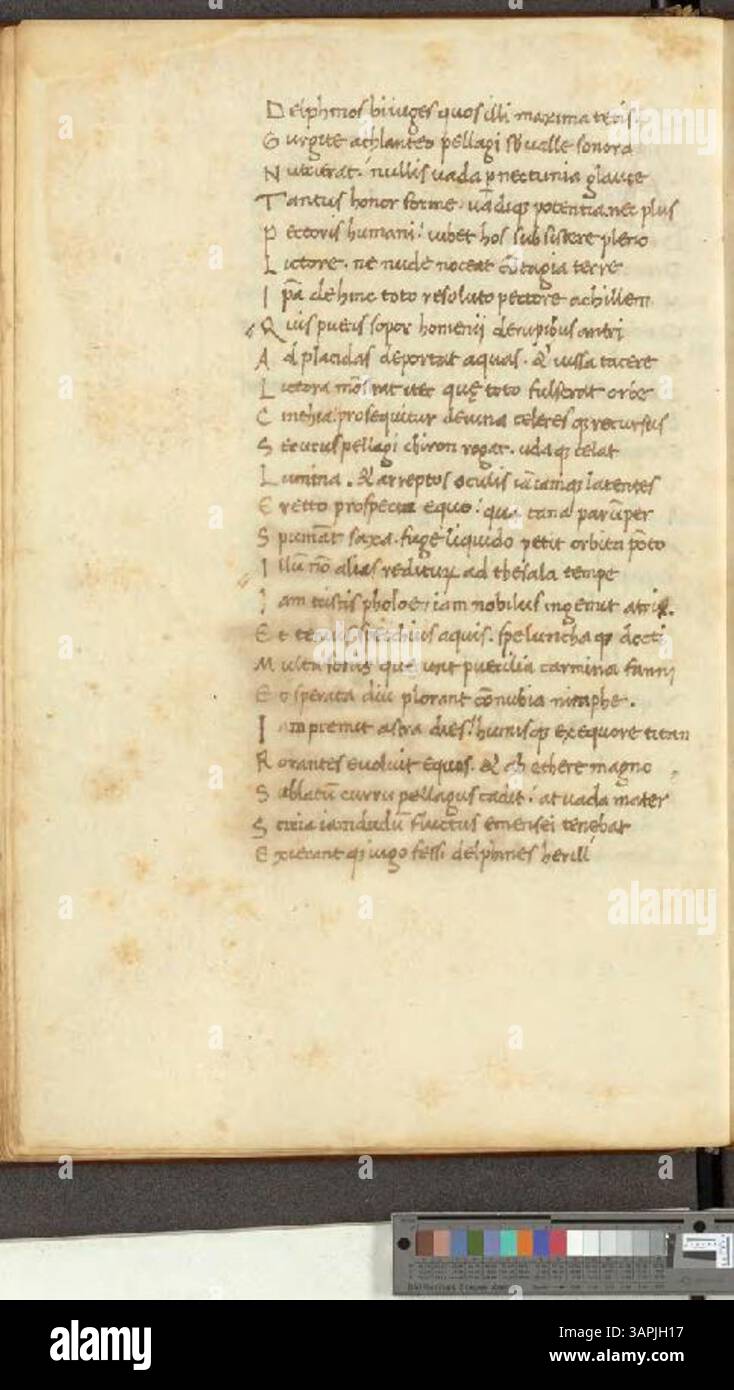 D elphinos biiuges quos illi maxima tetis.
G urgite athlanteo pellagi sub ualle sonora
N utrierat. nullis uada p nectunia glauce
T antus honor forme. uadiq; potentia nec plus
P ectoris humani. iubet hos subsistere pleno
L ictore. ne nude noceat cōtagia terre
I pā dehinc toto resoluto pectore achillem
Q uis pueris sopor homenii de rupibus antri
A d placidas deportat aquas. & iussa tacere
L ictora mōstrat iter quę toto fulserat orbe
C inthia. prosequitur deuina celeres q; recursus
S ecutus pellagi chiron rogat. udaq; celat
L umina. & arreptos oculis iā iamq; latentes
E recto prospectat equo. qua cana parūper
S pumāt saxa. fuge liquido petit orbita pōto
I llū nō alias rediturū ad thesala tempe
I am tristis pholoe. iam nobilus ingemit atris.
E t tenuis spechius aquis. speluncha q; docti
M uta senis querunt puerilia carmina fauni
E t sperata diu plorant cōnubia nimphe.
I am premit astra dies. humisq; ex equore titan
R orantes euoluit equos. & ab ethere magno
S ublatū curru pellagus cadit. at uada mater
S ciria iamdudū fluctus emensei tenebat
E xierant q; iugo fessi delphines herili
alamy
Image ID: 3APJH17
www.alamy.com